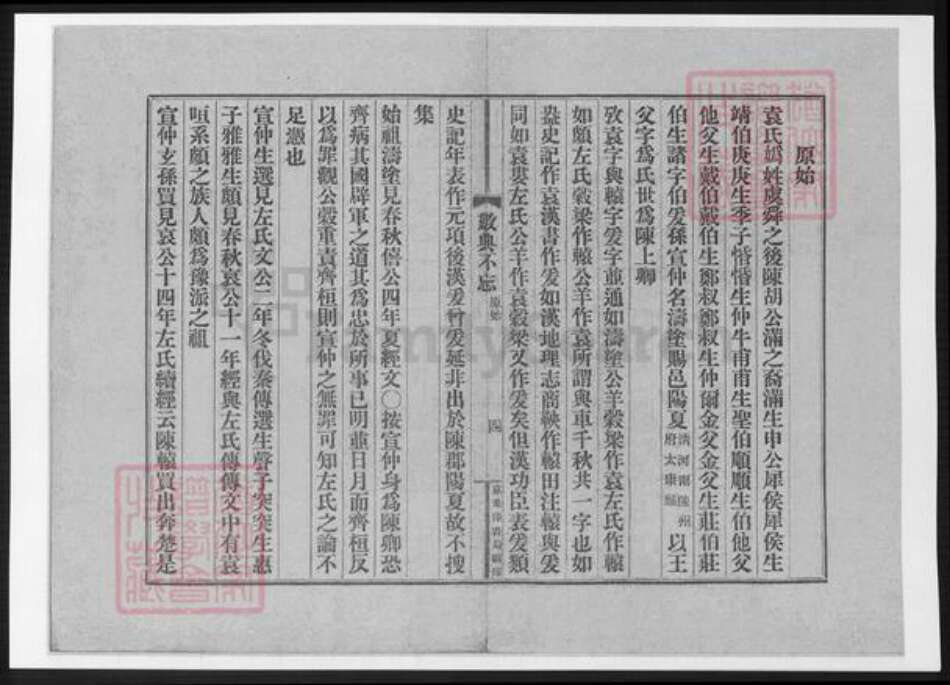 原始
袁氏媯姓虞舜之後陳胡公滿之裔滿生申公犀侯犀侯生
靖伯庚庚生季子惛惛生仲牛甫甫生聖伯順順生伯他父
他父生戴伯戴伯生鄭叔鄭叔生仲爾金父金父生莊伯莊
伯生諸字伯爰孫宣仲名濤塗賜邑陽夏清河南陳州府太康縣以王
父字爲氏世爲陳上卿
攷袁字與轅字爰字並通如濤塗公羊穀梁作袁左氏作轅
如頗左氏穀梁作轅公羊作袁所謂與車千秋共一字也如
盎史記作袁漢書作爰如漢地理志商鞅作轅田注轅與爰
同如袁婁左氏公羊作袁穀梁又作爰矣但漢功臣表爰類
史記年表作元項後漢爰曾爰延非出於陳郡陽夏故不搜
集
始祖濤塗見春秋僖公四年夏經文〇按宣仲身爲陳卿恐
齊病其國辟軍之道其爲忠於所事已明並日月而齊桓反
以爲罪觀公穀重責齊桓則宣仲之無罪可知左氏之論不
足憑也
宣仲生選見左氏文公二年冬伐秦傳選生聲子突突生惠
子雅雅生頗見春秋哀公十一年經與左氏傳傳文中有袁
咺系頗之族人頗爲豫派之祖
宣仲玄孫買見哀公十四年左氏續經云陳轅買出奔楚是
數典不忘
原始
四